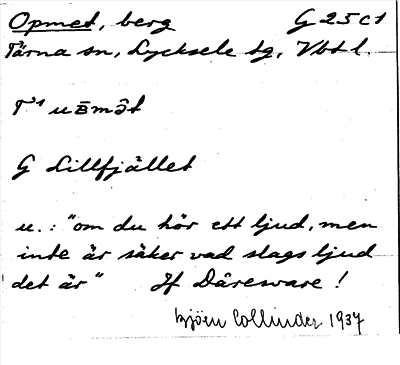 Opmet, berg G 25 c1
Tärna sn, Lycksele tg, Vbtl.
G Lillfjället
u.: "om du hör ett ljud, men
inte är säker vad slags ljud
det är" Jf Dåresware!
Björn Collinder 1937